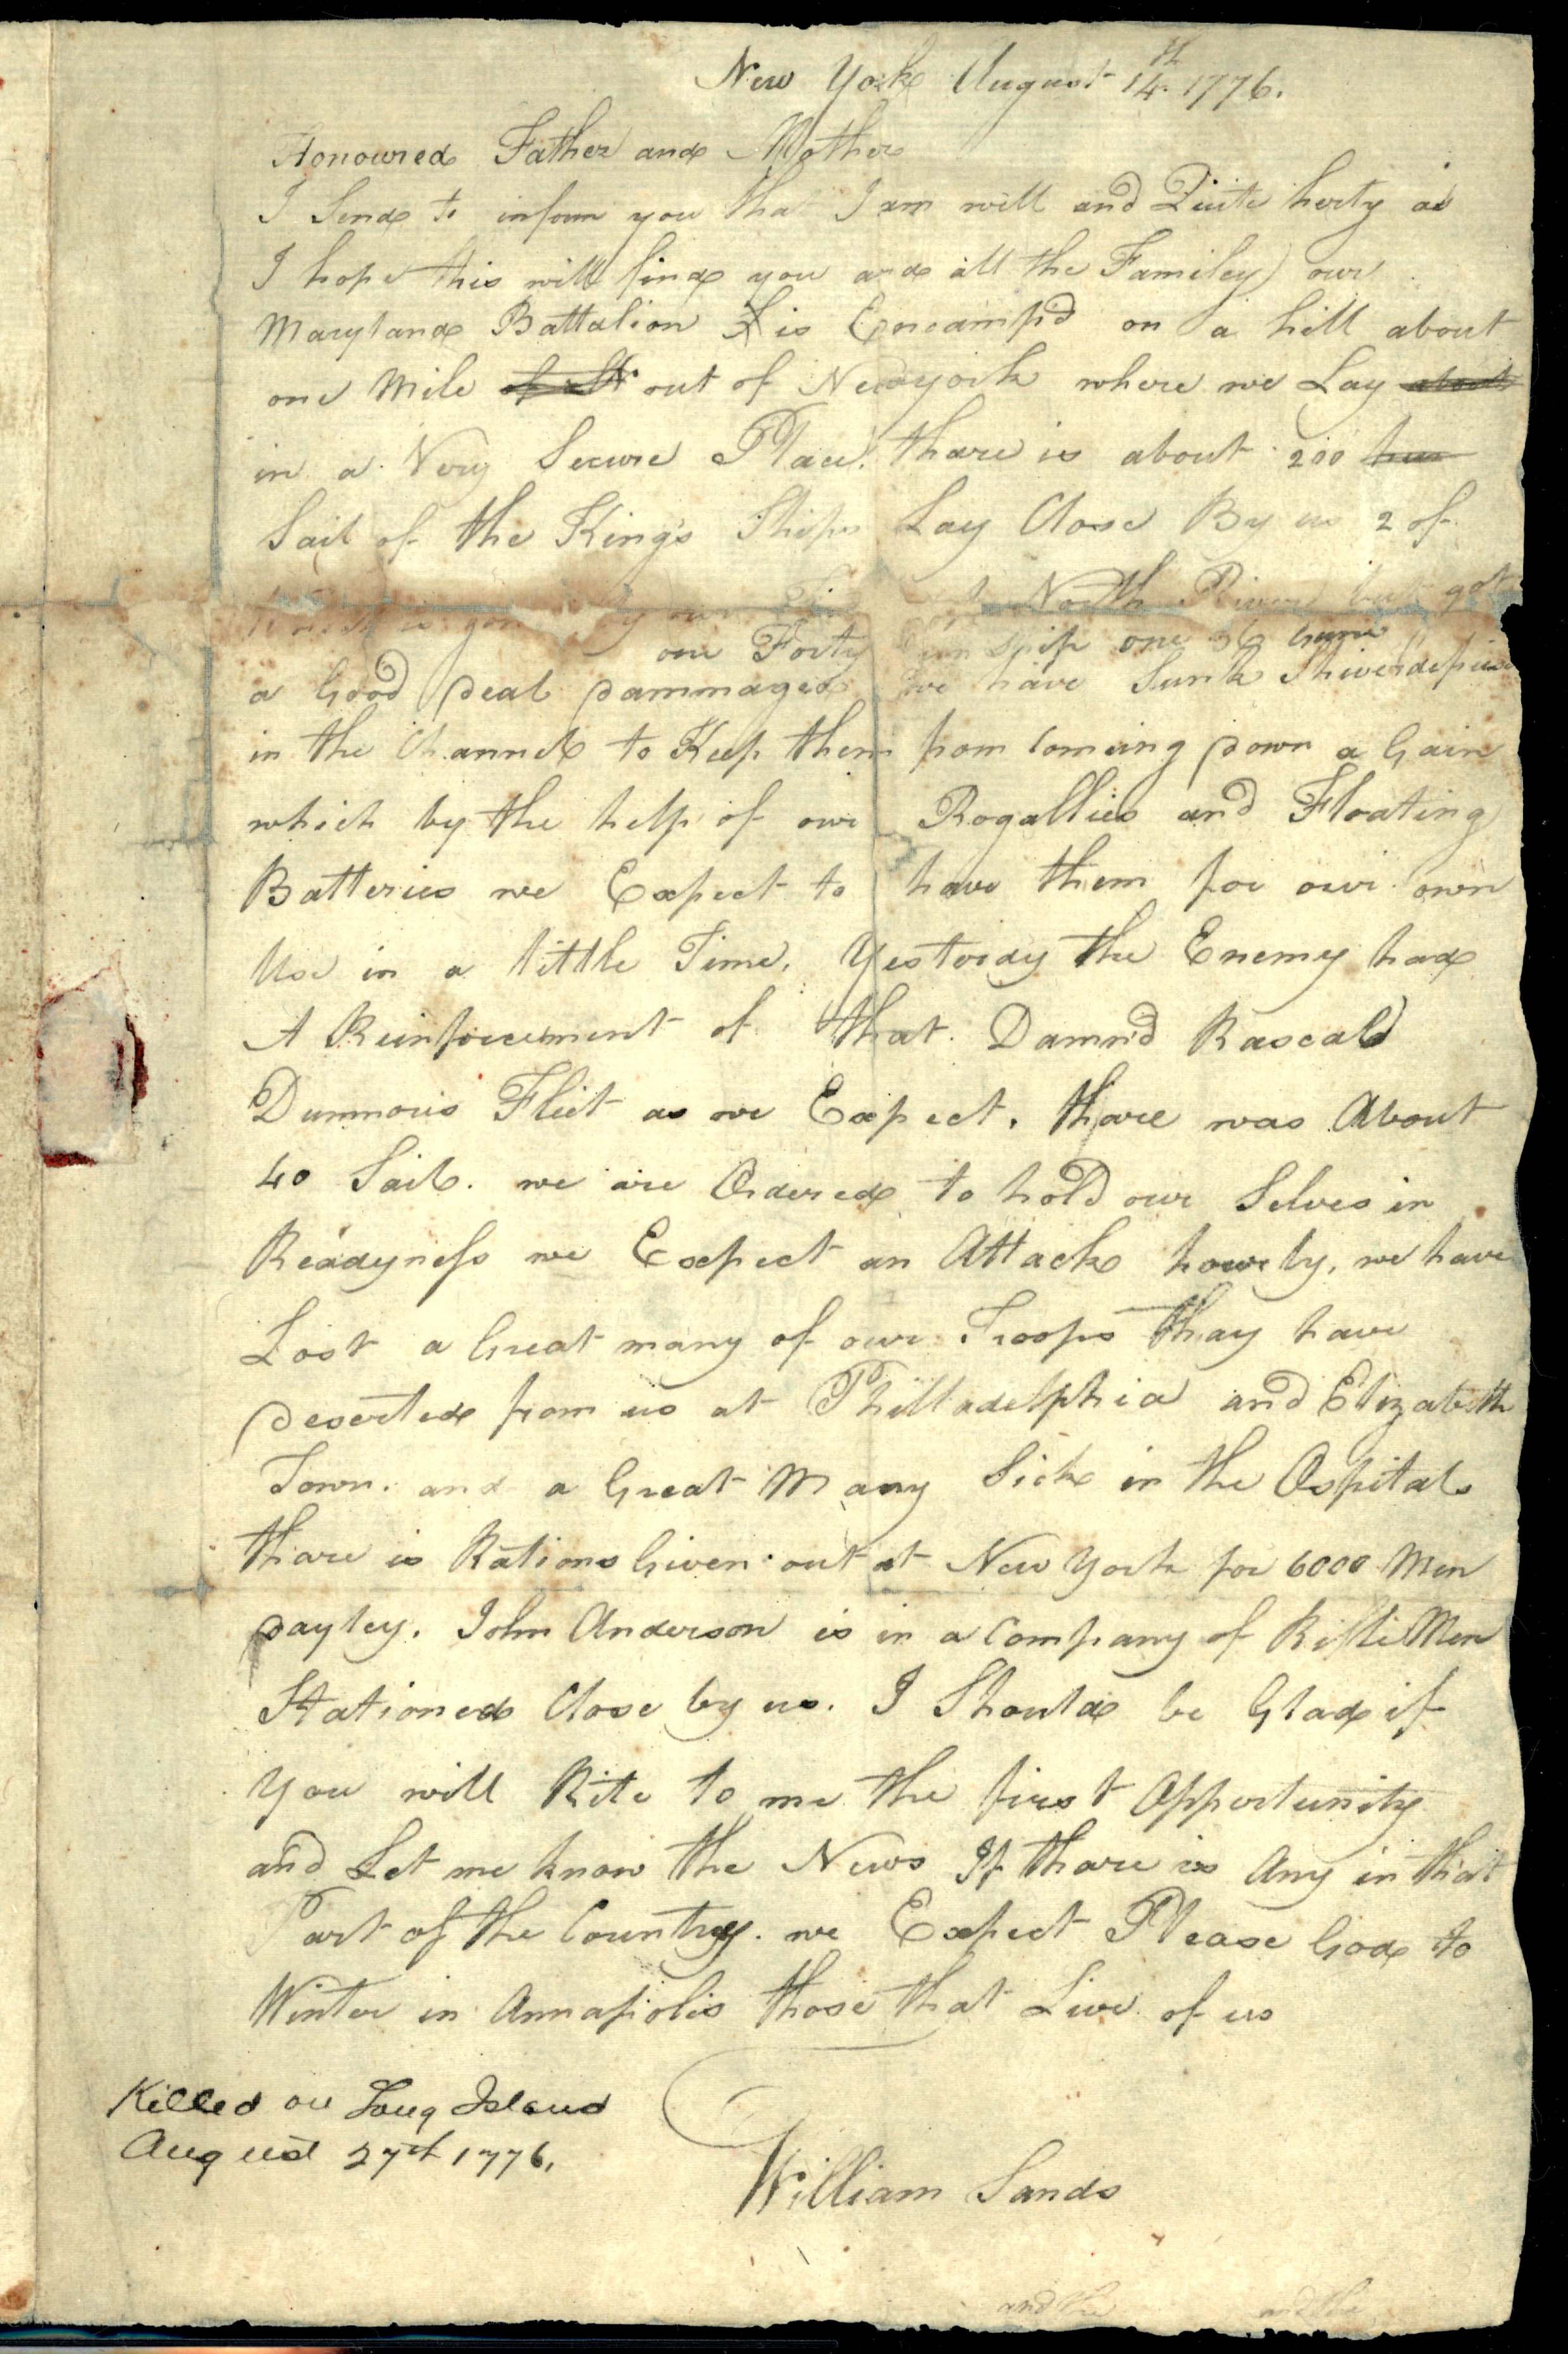 New York August 14th 1776.
Honoured Father and Mother
I Send to inform you tha I am well and Quite herty as
I hope this will find you and all the Familey our
Maryland Battalion is Encampd on a hill about
one Mile out of Newyork where we Lay
in a Very Secure Place. thare is about 200
Sail of the King's Ships Lay Close By us 2 of
North River but got
one Forty Gun Ship one 36 Guns
a Good Deal Dammaged we have Sunk Shiverdefriese
in the Channel to Keep them from Comeing Down a Gain
which by the help of our Rogallies and Floating
Batteries we Expect to have them for our own
Use in a little Time. Yestoidy the Enemy had
A Reinforcement of that Damn'd Rascald
Dunmoris Fleet as we Expect. thare was About
40 Sail. we are Ordered to hold our Selves in
Readyness we Expect an Attack howrly. we have
Lost a Great many of our Troops thay have
Deserted from us at Philladelphia and Elizabeth
Town. and a Great Many Sick in the Ospital
thare is Rations Given out at New York for 6000 Men
Dayley. John Anderson is in a Company of Rifle Men
Stationed Close by us. I Should be Glad if
You will Rite to me the first Oppertunity
and Let me know the News If thare is Any in that
Part of the Country. we Expect Please God to
Winter in Annapolis those that Live of us
Killed on Long Island
August 27th 1776.
William Sands